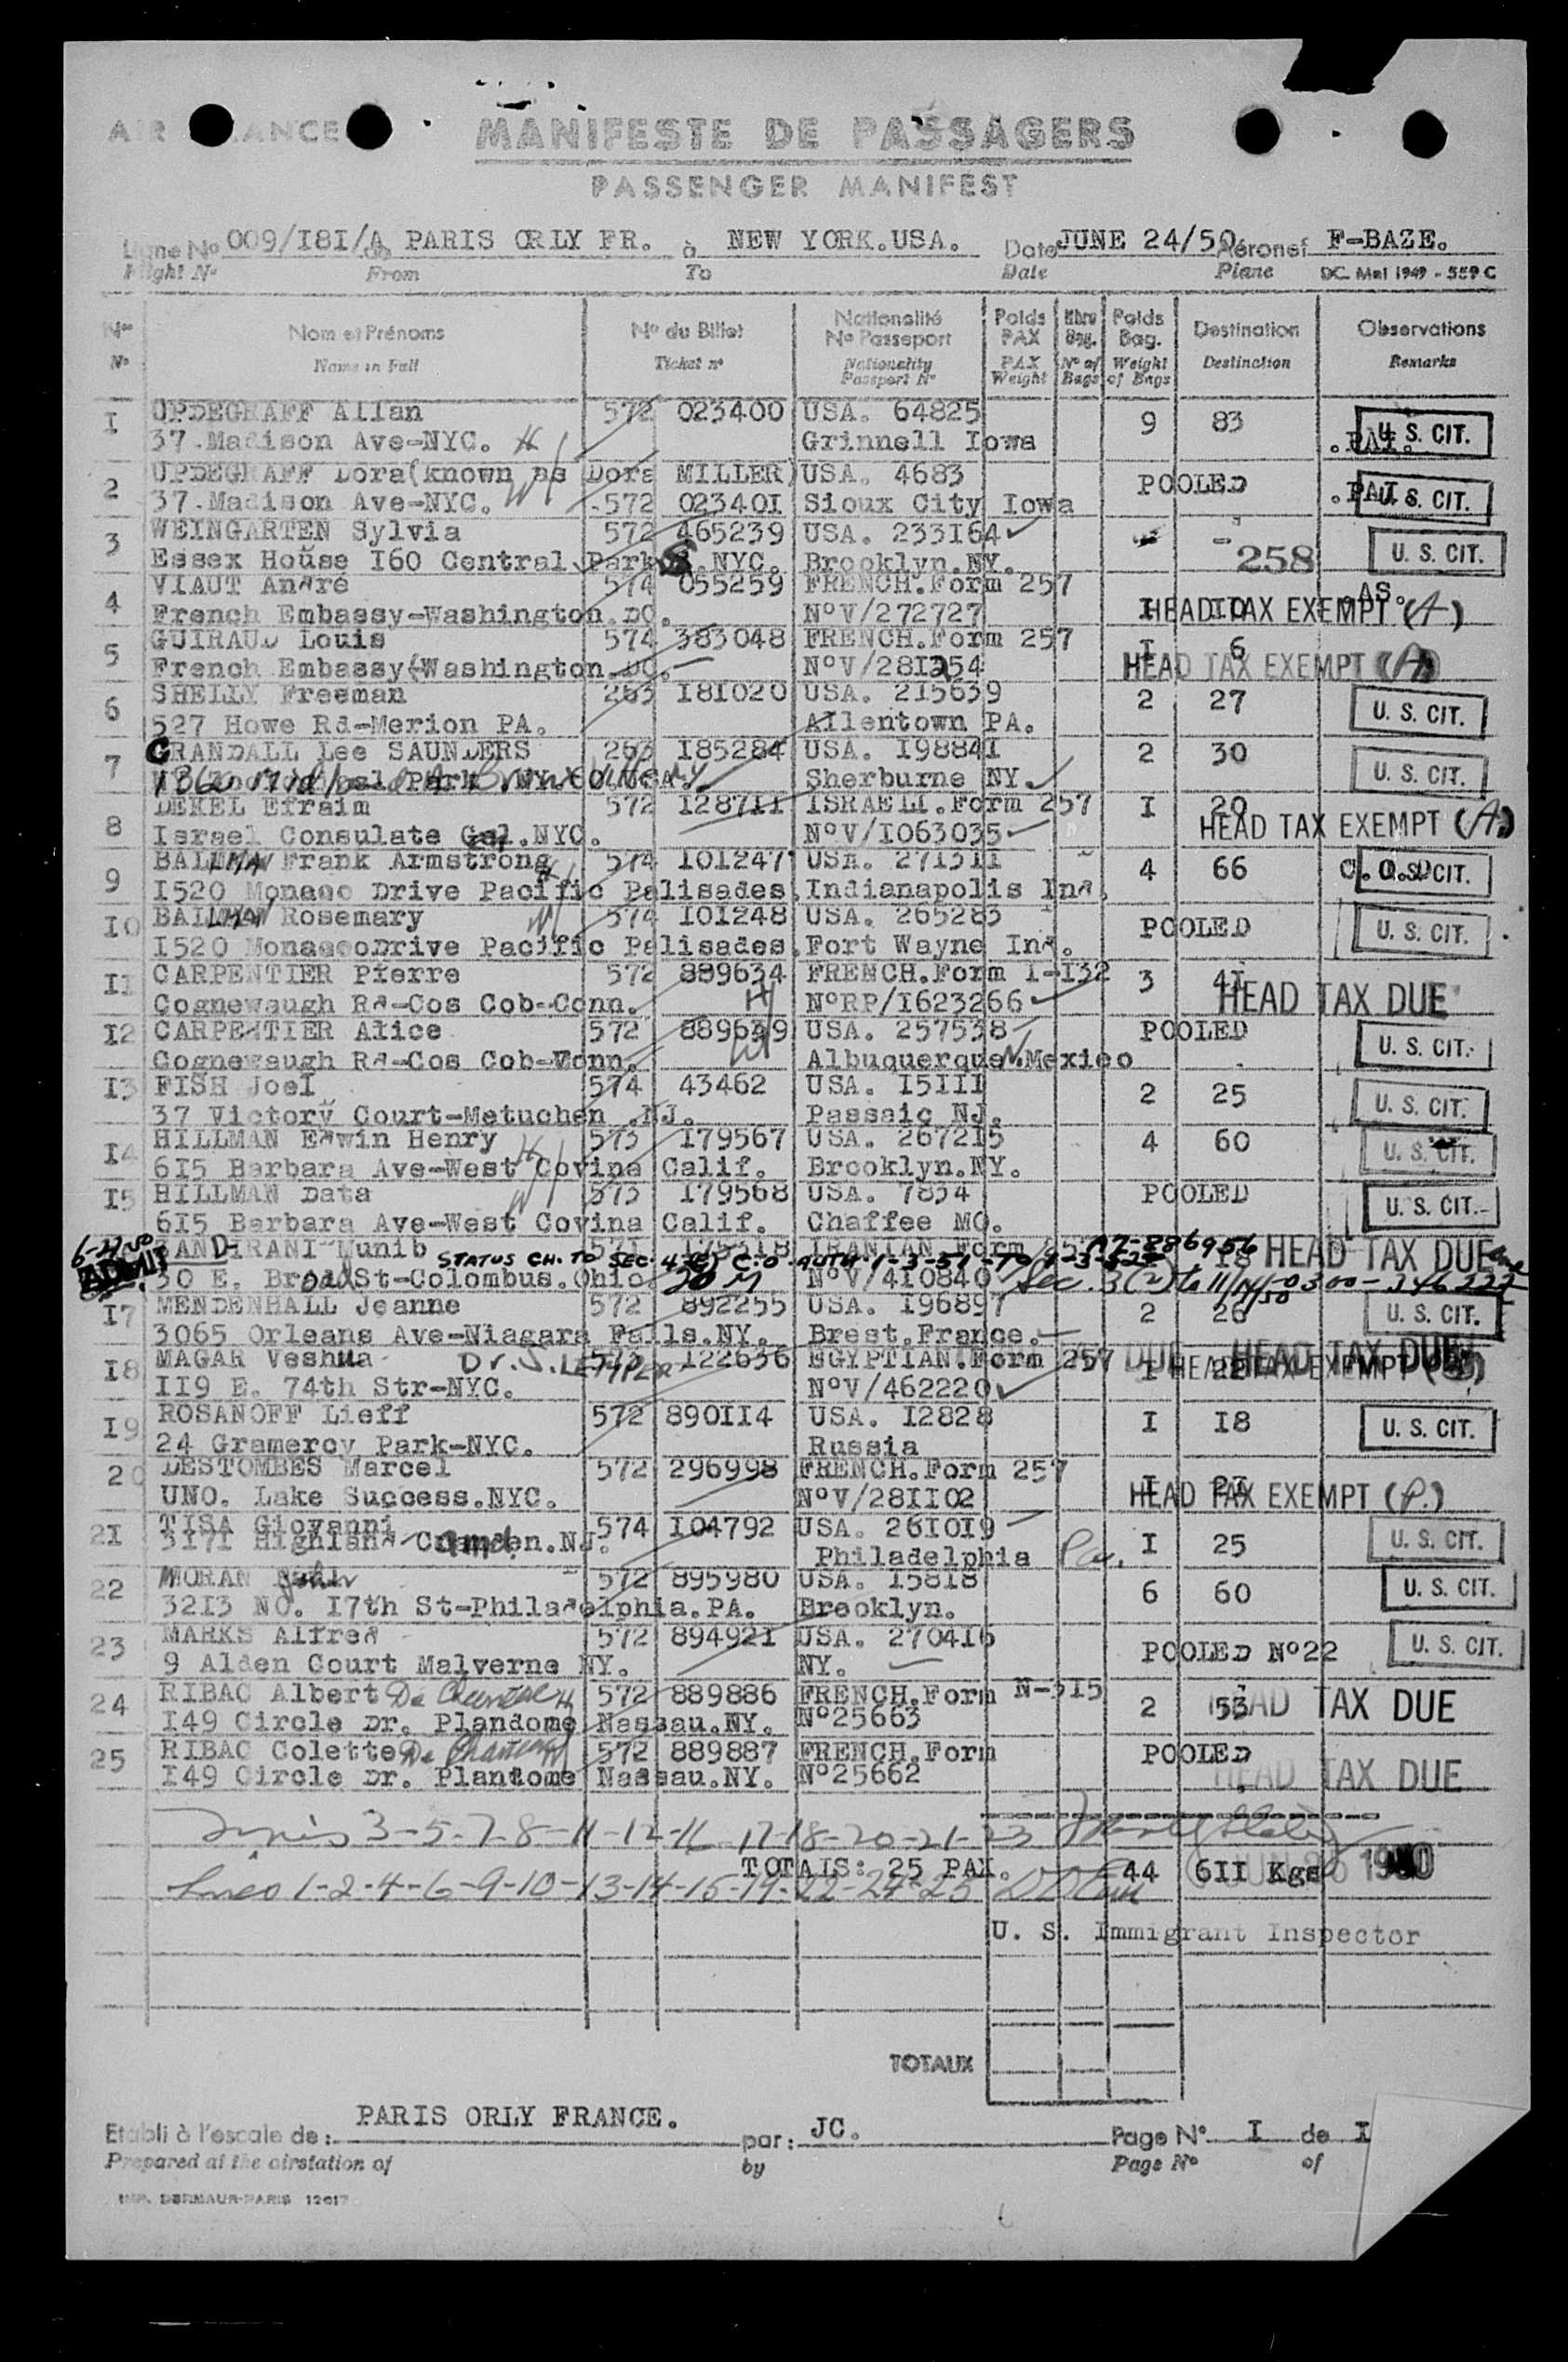 AIR ANCE
MANIFESTE DE PASSAGERS
PASSENGER MANIFEST
Ligne No 009/I8I/A de PARIS ORLY FR. à NEW YORK.USA. Date JUNE 24/50 Aéronef F-BAZE.
Flight No From To Date Plane DC. Mai 1949 - 559 C
Nos Nom et Prénoms No du Billet Nationalité No Passeport Poids PAX Nbre Bag. Poids Bag. Destination Observations
No Name in Full Ticket no Nationality Passport No PAX Weight No of Bags Weight of Bags Destination Remarks
I UPDEGRAFF Allan 572 023400 USA. 64825 9 83 U. S. CIT.
37.Madison Ave-NYC. H/ Grinnell Iowa .PAI.
2 UPDEGRAFF Dora(known as Dora MILLER) USA. 4683 POOLED .PAI. U. S. CIT.
37.Madison Ave-NYC. W/ 572 02340I Sioux City Iowa
3 WEINGARTEN Sylvia 572 465239 USA. 233I64 - 258 U. S. CIT.
Essex House I60 Central Park S.NYC. Brooklyn.NY.
4 VIAUT André 574 055259 FRENCH.Form 257 .AS.
French Embassy-Washington.DC. NoV/272727 I I0 HEAD TAX EXEMPT (A)
5 GUIRAUD Louis 574 383048 FRENCH.Form 257 I 6
French Embassy-Washington.DC. NoV/281254 HEAD TAX EXEMPT (A)
6 SHELLY Freeman 263 I8I020 USA. 215639 2 27 U. S. CIT.
527 Howe Rd-Merion PA. Allentown PA.
7 GRANDALL Lee SAUNDERS 263 I85284 USA. I9884I 2 30 U. S. CIT.
Park .NY. Sherburne NY
8 DEKEL Efraim 572 I287II ISRAELI.Form 257 I 20
Israel Consulate Gen.NYC. NoV/I063035 HEAD TAX EXEMPT (A)
9 BALLMAN Frank Armstrong 574 I0I247 USA. 27I3II 4 66 U. S. CIT.
I520 Monaco Drive Pacific Palisades. Indianapolis Ind.
I0 BALLMAN Rosemary W/ 574 I0I248 USA. 265283 POOLED U. S. CIT.
I520 MonacoDrive Pacific Palisades. Fort Wayne Ind.
II CARPENTIER Pierre 572 889634 FRENCH.Form I-I32 3 4I
Cognewaugh Rd-Cos Cob-Conn. H/ NoRP/I623266 HEAD TAX DUE
I2 CARPENTIER Alice 572 889639 USA. 257538 POOLED U. S. CIT.
Cognewaugh Rd-Cos Cob-Conn. W/ Albuquerque N.Mexico
I3 FISH Joel 574 43462 USA. I5III 2 25 U. S. CIT.
37 Victory Court-Metuchen .NJ. Passaic NJ.
I4 HILLMAN Edwin Henry H/ 573 I79567 USA. 2672I5 4 60 U. S. CIT.
6I5 Barbara Ave-West Covina Calif. Brooklyn.NY.
I5 HILLMAN Data W/ 573 I79568 USA. 7834 POOLED U. S. CIT.
6I5 Barbara Ave-West Covina Calif. Chaffee MO.
6-27-50 ADMIT Munib 571 IRANIAN Form A7-886956 I8 HEAD TAX DUE
STATUS CH. TO SEC. 4(E) C.O. AUTH. 1-3-51
30 E. Broad St-Colombus.Ohio 20 M NoV/4I0840 Sec. 3(2) to 11/14/50 0300-346222
I7 MENDENHALL Jeanne 572 892255 USA. I96897 2 26 U. S. CIT.
3065 Orleans Ave-Niagara Falls.NY. Brest.France.
I8 MAGAR Veshua Dr. J. I22636 EGYPTIAN.Form 257 I 22 HEAD TAX DUE HEAD TAX EXEMPT
II9 E. 74th Str-NYC. NoV/462220
I9 ROSANOFF Lieff 572 890II4 USA. I2828 I I8 U. S. CIT.
24 Gramercy Park-NYC. Russia
20 DESTOMBES Marcel 572 296998 FRENCH.Form 257
UNO. Lake Success.NYC. NoV/28II02 I 27 HEAD TAX EXEMPT (P.)
2I TISA Giovanni 574 I04792 USA. 26I0I9 I 25 U. S. CIT.
3I7I Highland-Camden.NJ. Philadelphia Pa.
22 MORAN John 572 895980 USA. I58I8 6 60 U. S. CIT.
32I3 NO. I7th St-Philadelphia.PA. Brooklyn.
23 MARKS Alfred 572 89492I USA. 2704I6 POOLED No22 U. S. CIT.
9 Alden Court Malverne NY. NY.
24 RIBAC Albert De H 572 889886 FRENCH.Form N-3I5 2 53 HEAD TAX DUE
I49 Circle Dr. Plandome Nassau.NY. No25663
25 RIBAC Colette De W 572 889887 FRENCH.Form POOLED
I49 Circle Dr. Plandome Nassau.NY. No25662 HEAD TAX DUE
Lines 3-5-7-8-11-12-16-17-18-20-21-23
TOTALS: 25 PAX. 44 6II Kgs JUN 26 1950
Lines 1-2-4-6-9-10-13-14-15-19-22-24-25
U. S. Immigrant Inspector
TOTAUX
Etabli à l'escale de: PARIS ORLY FRANCE. par: JC. Page No I de I
Prepared at the airstation of by Page No of
IMP. DERMAUR-PARIS 12017